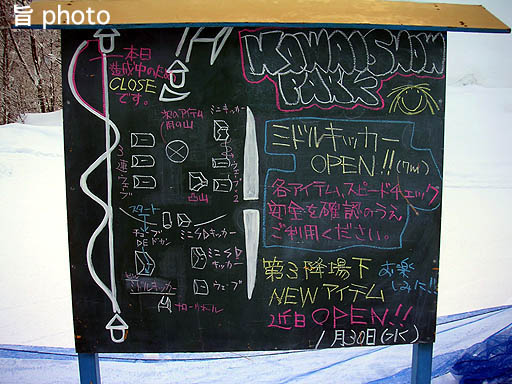 旨 photo
KOWAO SNOW
PARK
本日
造成中のため
CLOSE
です。
氷のアイテム
月の山
ミニキッカー
3連ウェーブ
凸山
ウェーブ2
スタート
チューブ
DE ドカン
ミニSDキッカー
ミニSD
キッカー
ミドルキッカー
ウェーブ
ミドルキッカー
OPEN!!(7m)
各アイテム、スピードチェック
安全を確認のうえ
ご利用ください。
第3降場下
NEWアイテム
近日OPEN!!
お楽
しみに!!
1月30日(水)